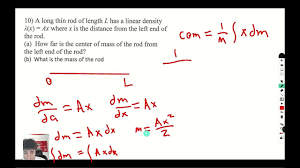 10) A long thin rod of length L has a linear density
λ(x) = Ax where x is the distance from the left end of
the rod.
(a) How far is the center of mass of the rod from
the left end of the rod?
(b) What is the mass of the rod
com = 1/m ∫ x dm
1
0 L
dm/da = Ax dm/dx = Ax
dm = Ax dx m = Ax²/2
∫dm = ∫Ax dx